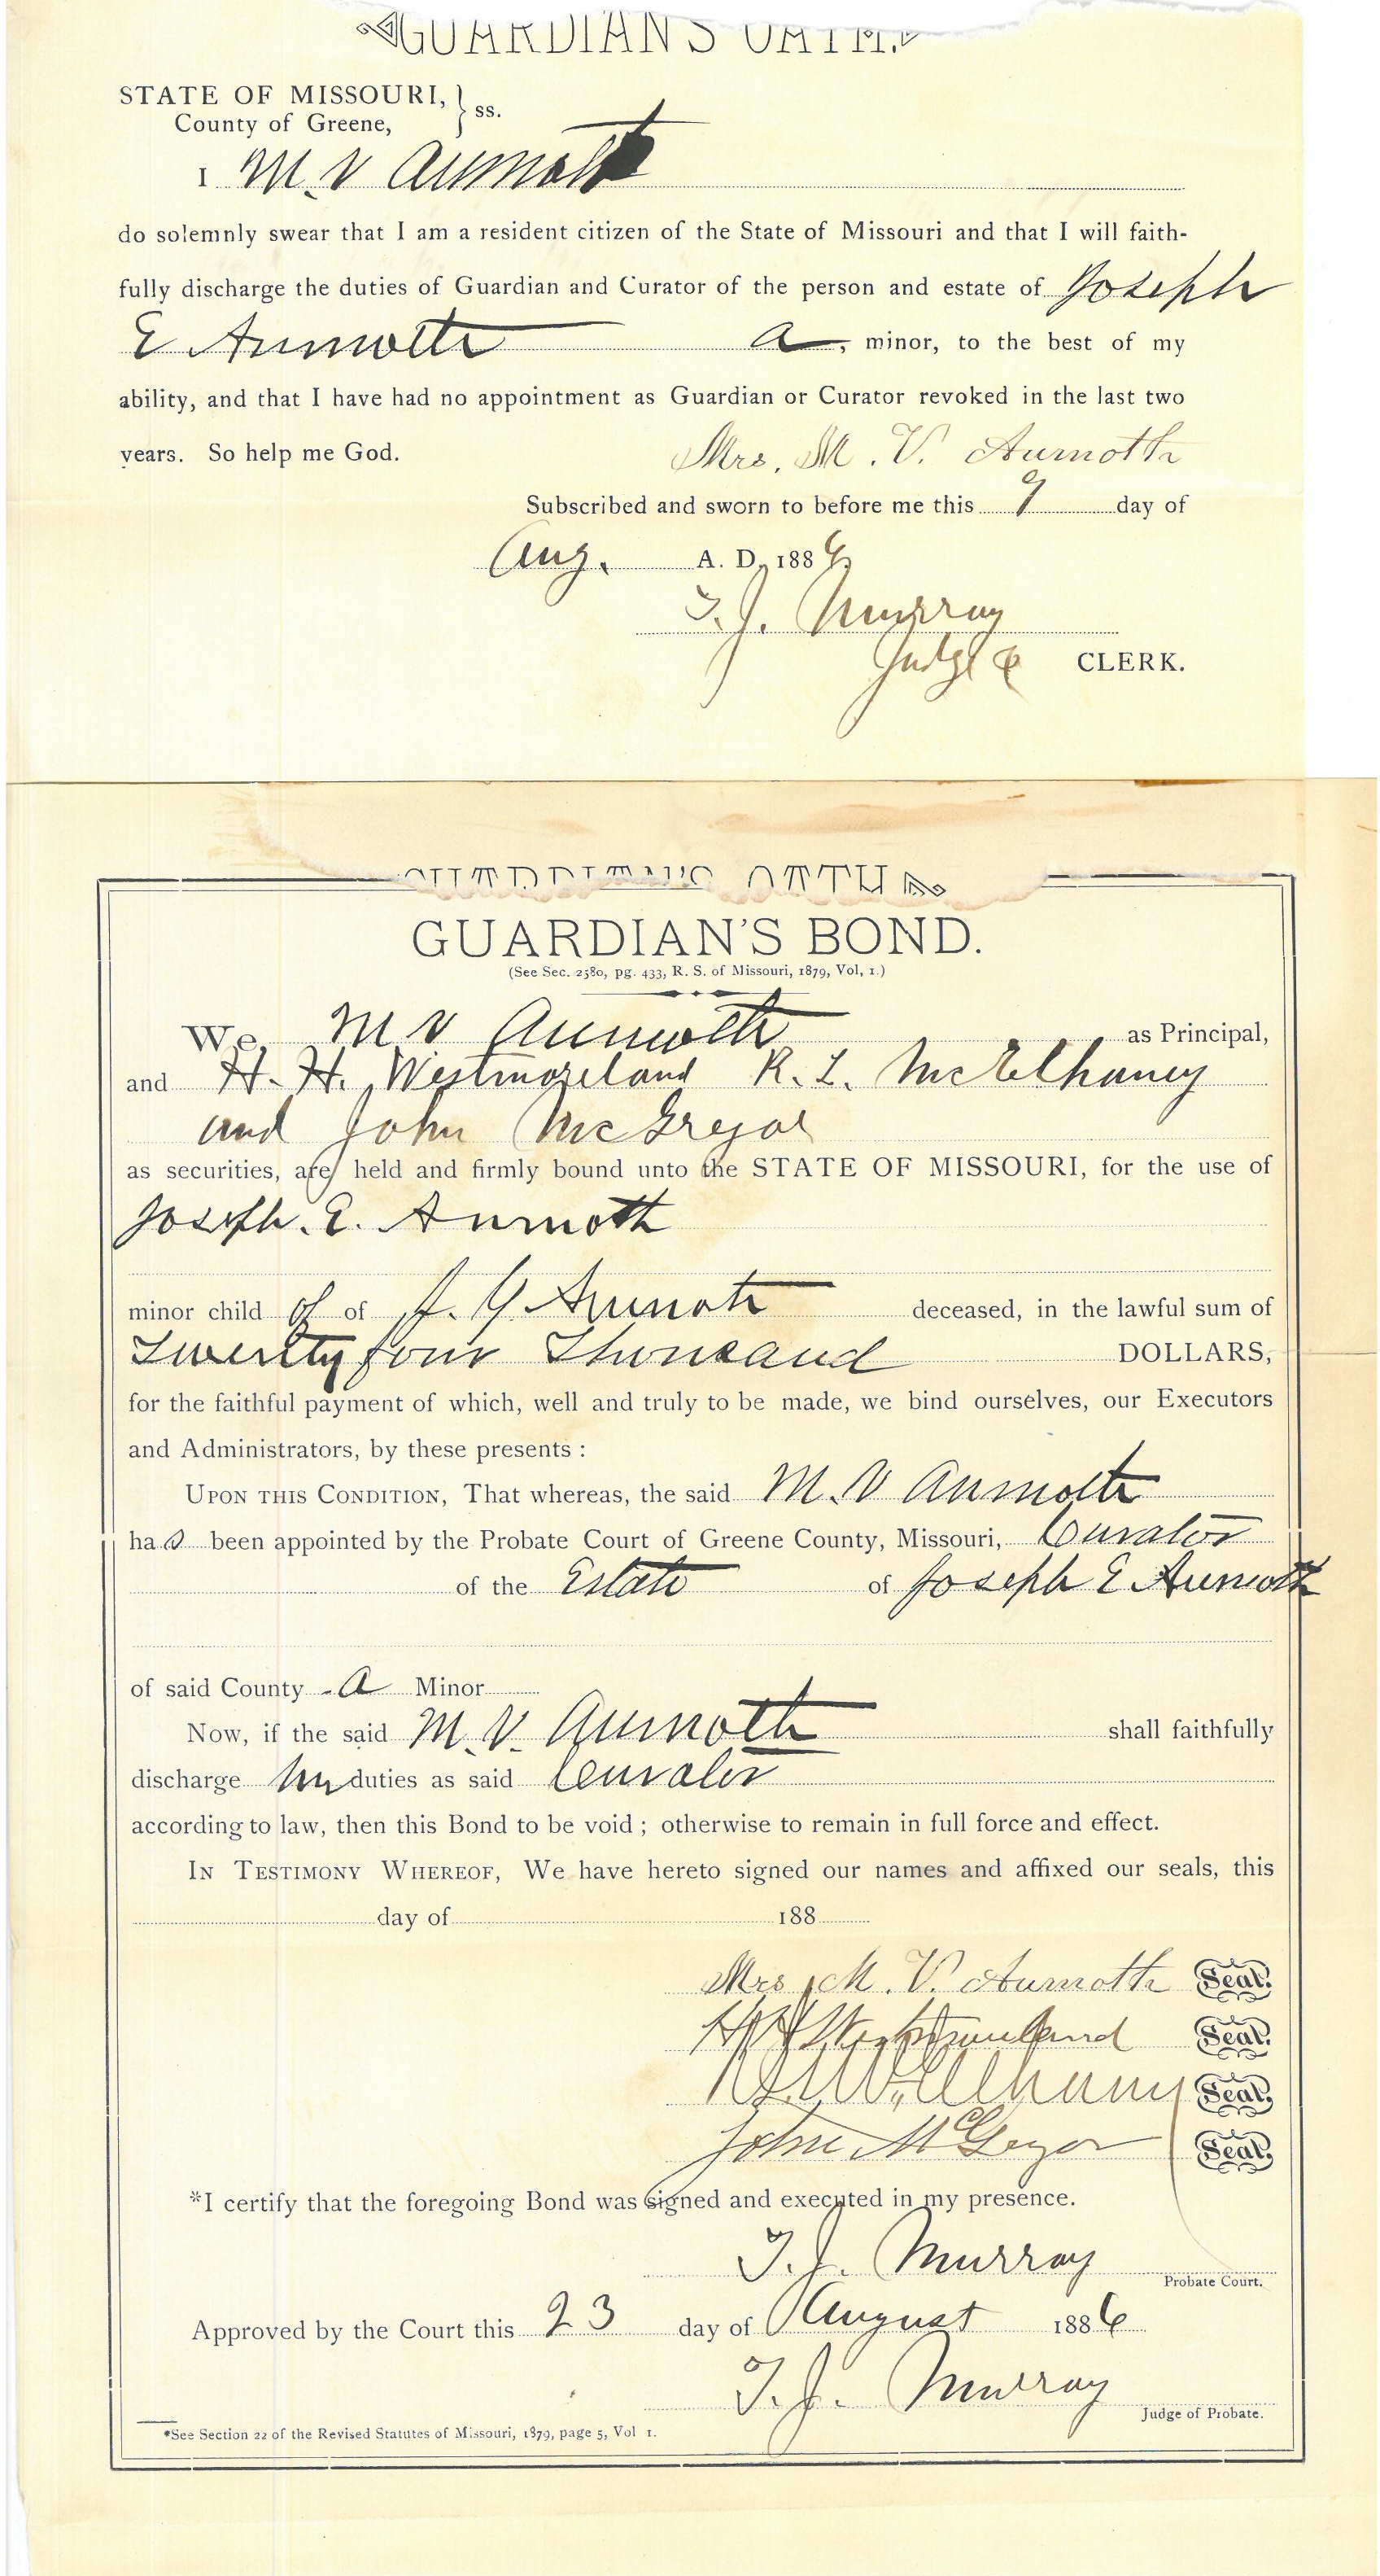 GUARDIAN'S OATH.
STATE OF MISSOURI, } ss.
County of Greene,
I M. V Aumoth
do solemnly swear that I am a resident citizen of the State of Missouri and that I will faith-
fully discharge the duties of Guardian and Curator of the person and estate of Joseph
E Aumoth a, minor, to the best of my
ability, and that I have had no appointment as Guardian or Curator revoked in the last two
years. So help me God. Mrs. M. V. Aumoth
Subscribed and sworn to before me this 9 day of
Aug. A. D. 1886.
T. J. Murray
Judge & CLERK.
GUARDIAN'S OATH
GUARDIAN'S BOND.
(See Sec. 2580, pg. 433, R. S. of Missouri, 1879, Vol, 1.)
We, M V Aumoth as Principal,
and H. H. Westmoreland R. L. McElhaney
and John McGregor
as securities, are held and firmly bound unto the STATE OF MISSOURI, for the use of
Joseph. E. Aumoth
minor child of of J. Y. Aumoth deceased, in the lawful sum of
Twenty four Thousand DOLLARS,
for the faithful payment of which, well and truly to be made, we bind ourselves, our Executors
and Administrators, by these presents :
UPON THIS CONDITION, That whereas, the said M. V Aumoth
has been appointed by the Probate Court of Greene County, Missouri, Curator
of the Estate of Joseph E Aumoth
of said County - a Minor
Now, if the said M. V. Aumoth shall faithfully
discharge duties as said Curator
according to law, then this Bond to be void ; otherwise to remain in full force and effect.
IN TESTIMONY WHEREOF, We have hereto signed our names and affixed our seals, this
day of 188
Mrs. M. V. Aumoth Seal.
H H Westmoreland Seal.
R. L. McElhany Seal.
John McGregor Seal.
*I certify that the foregoing Bond was signed and executed in my presence.
T. J. Murray
Probate Court.
Approved by the Court this 23 day of August 1886
T. J. Murray
Judge of Probate.
*See Section 22 of the Revised Statutes of Missouri, 1879, page 5, Vol 1.